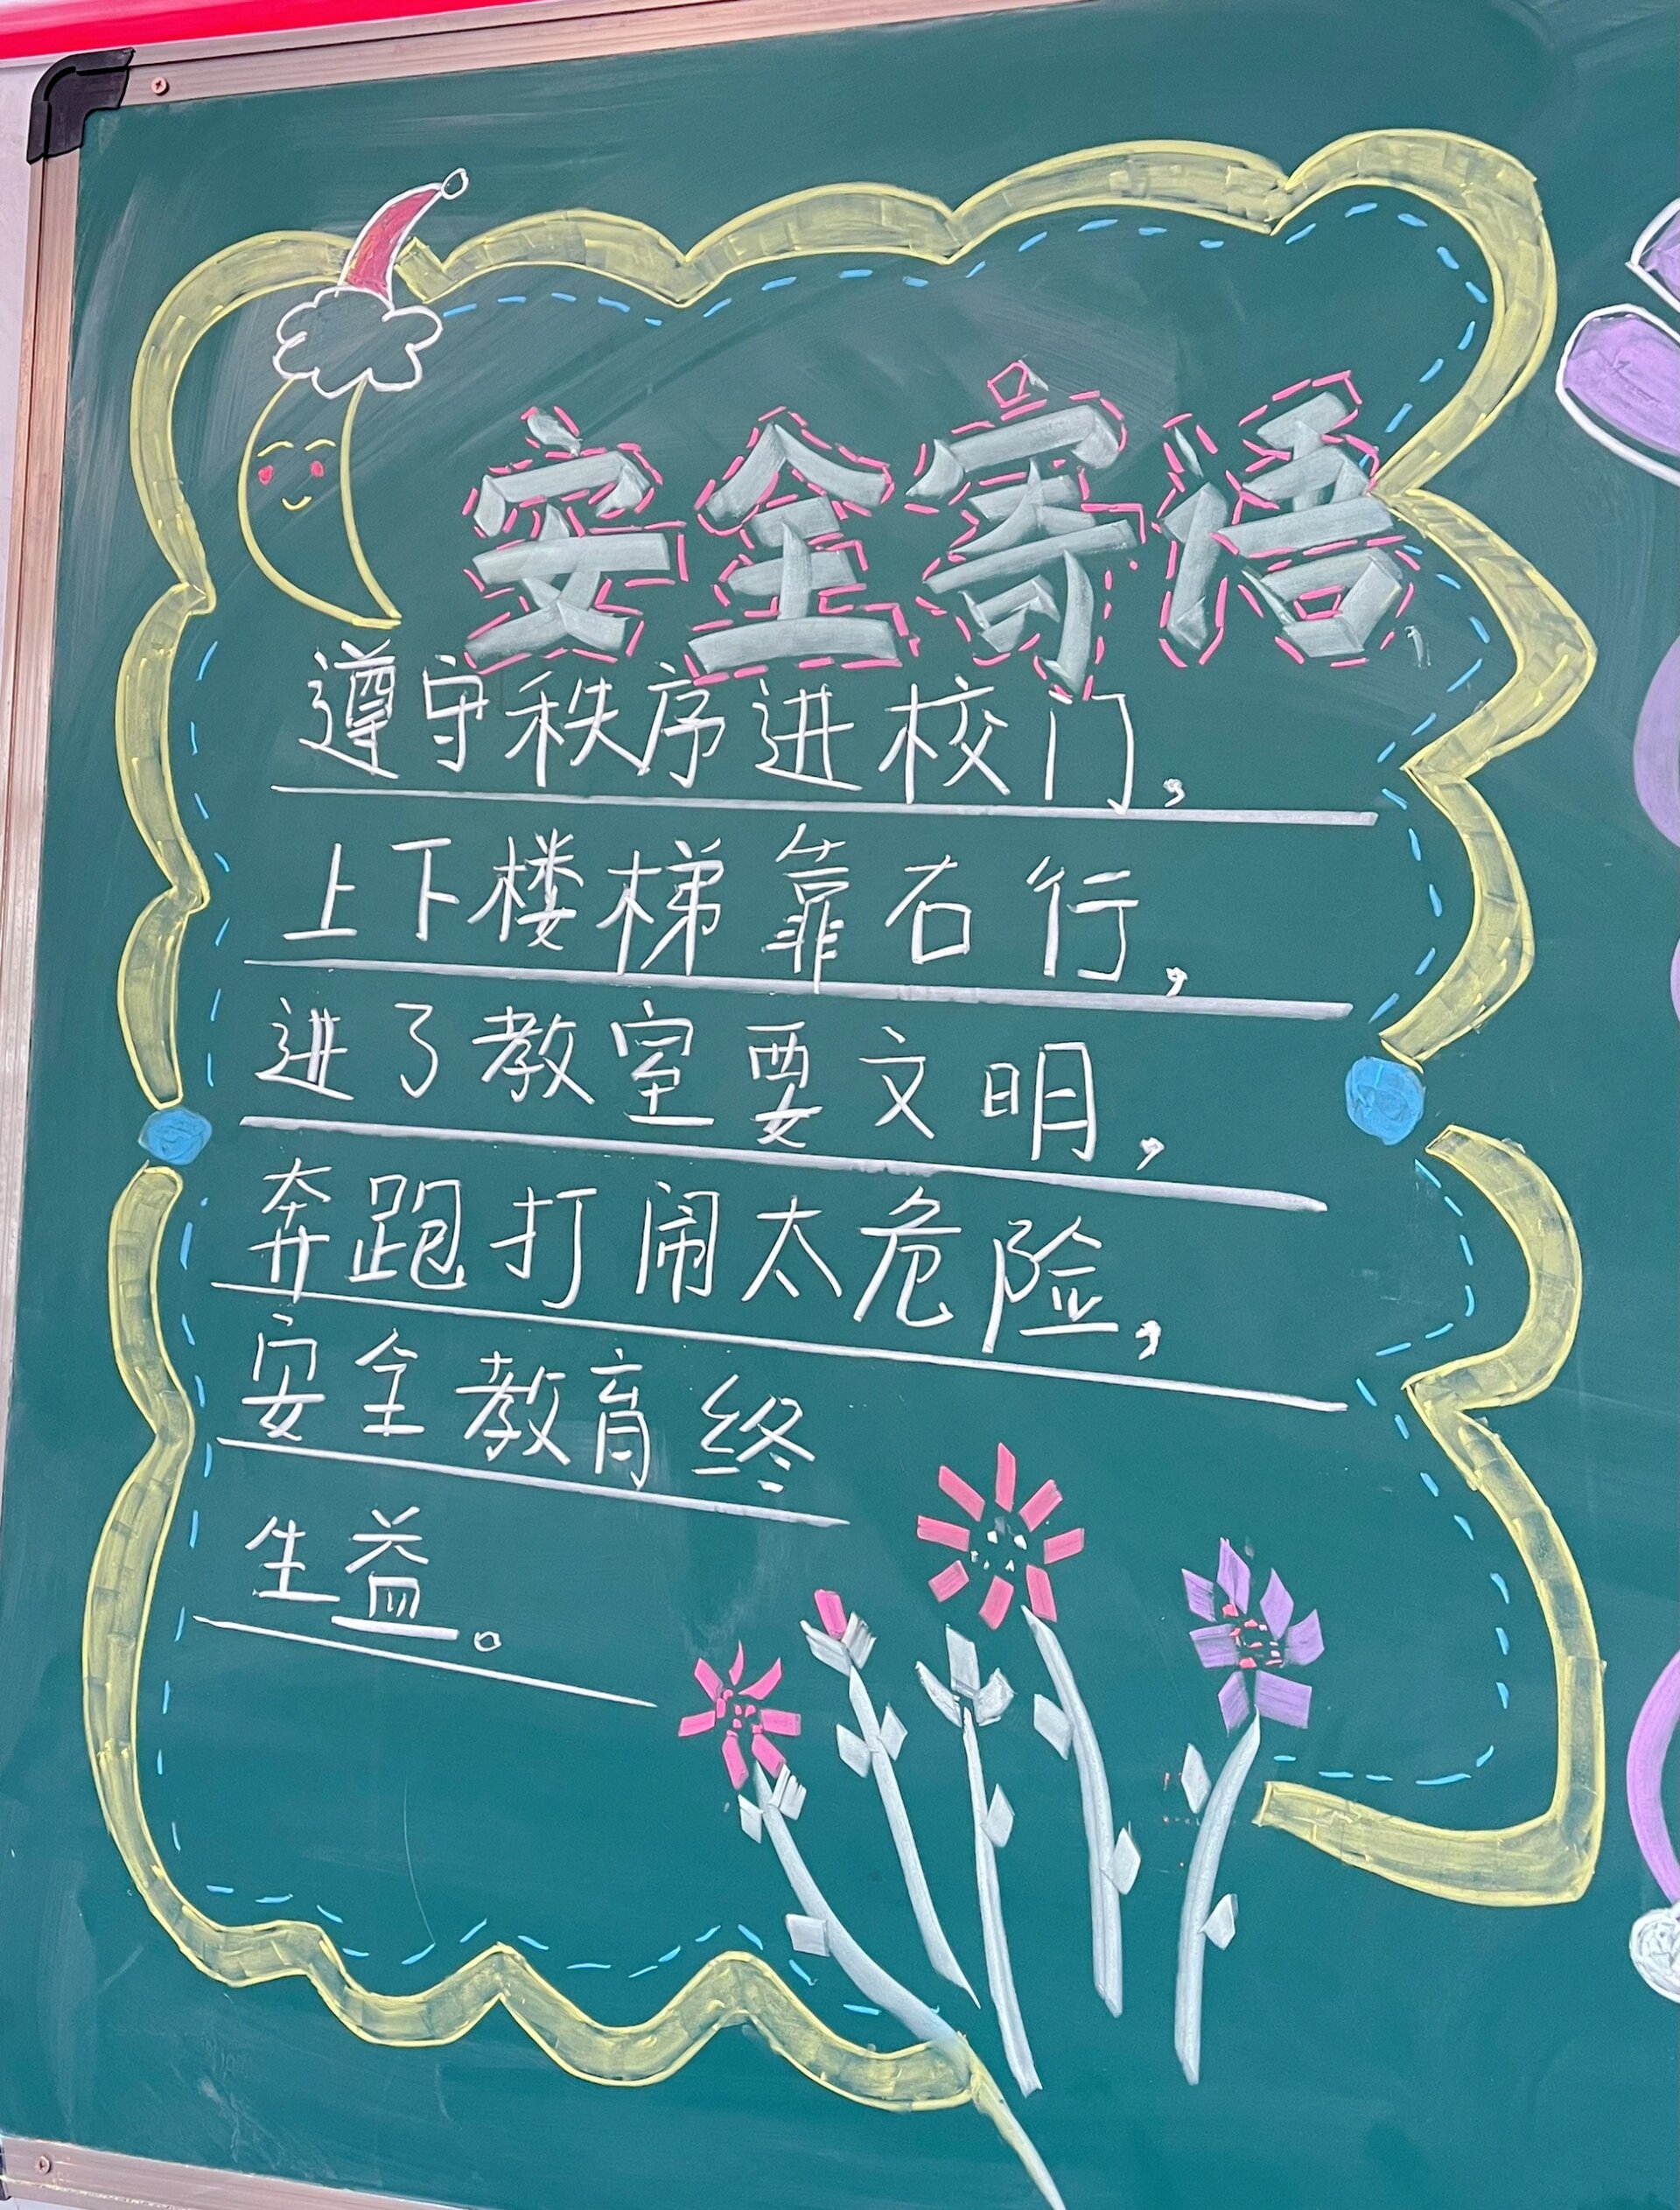 安全寄语
遵守秩序进校门,
上下楼梯靠右行,
进了教室要文明,
奔跑打闹太危险,
安全教育终
生益。